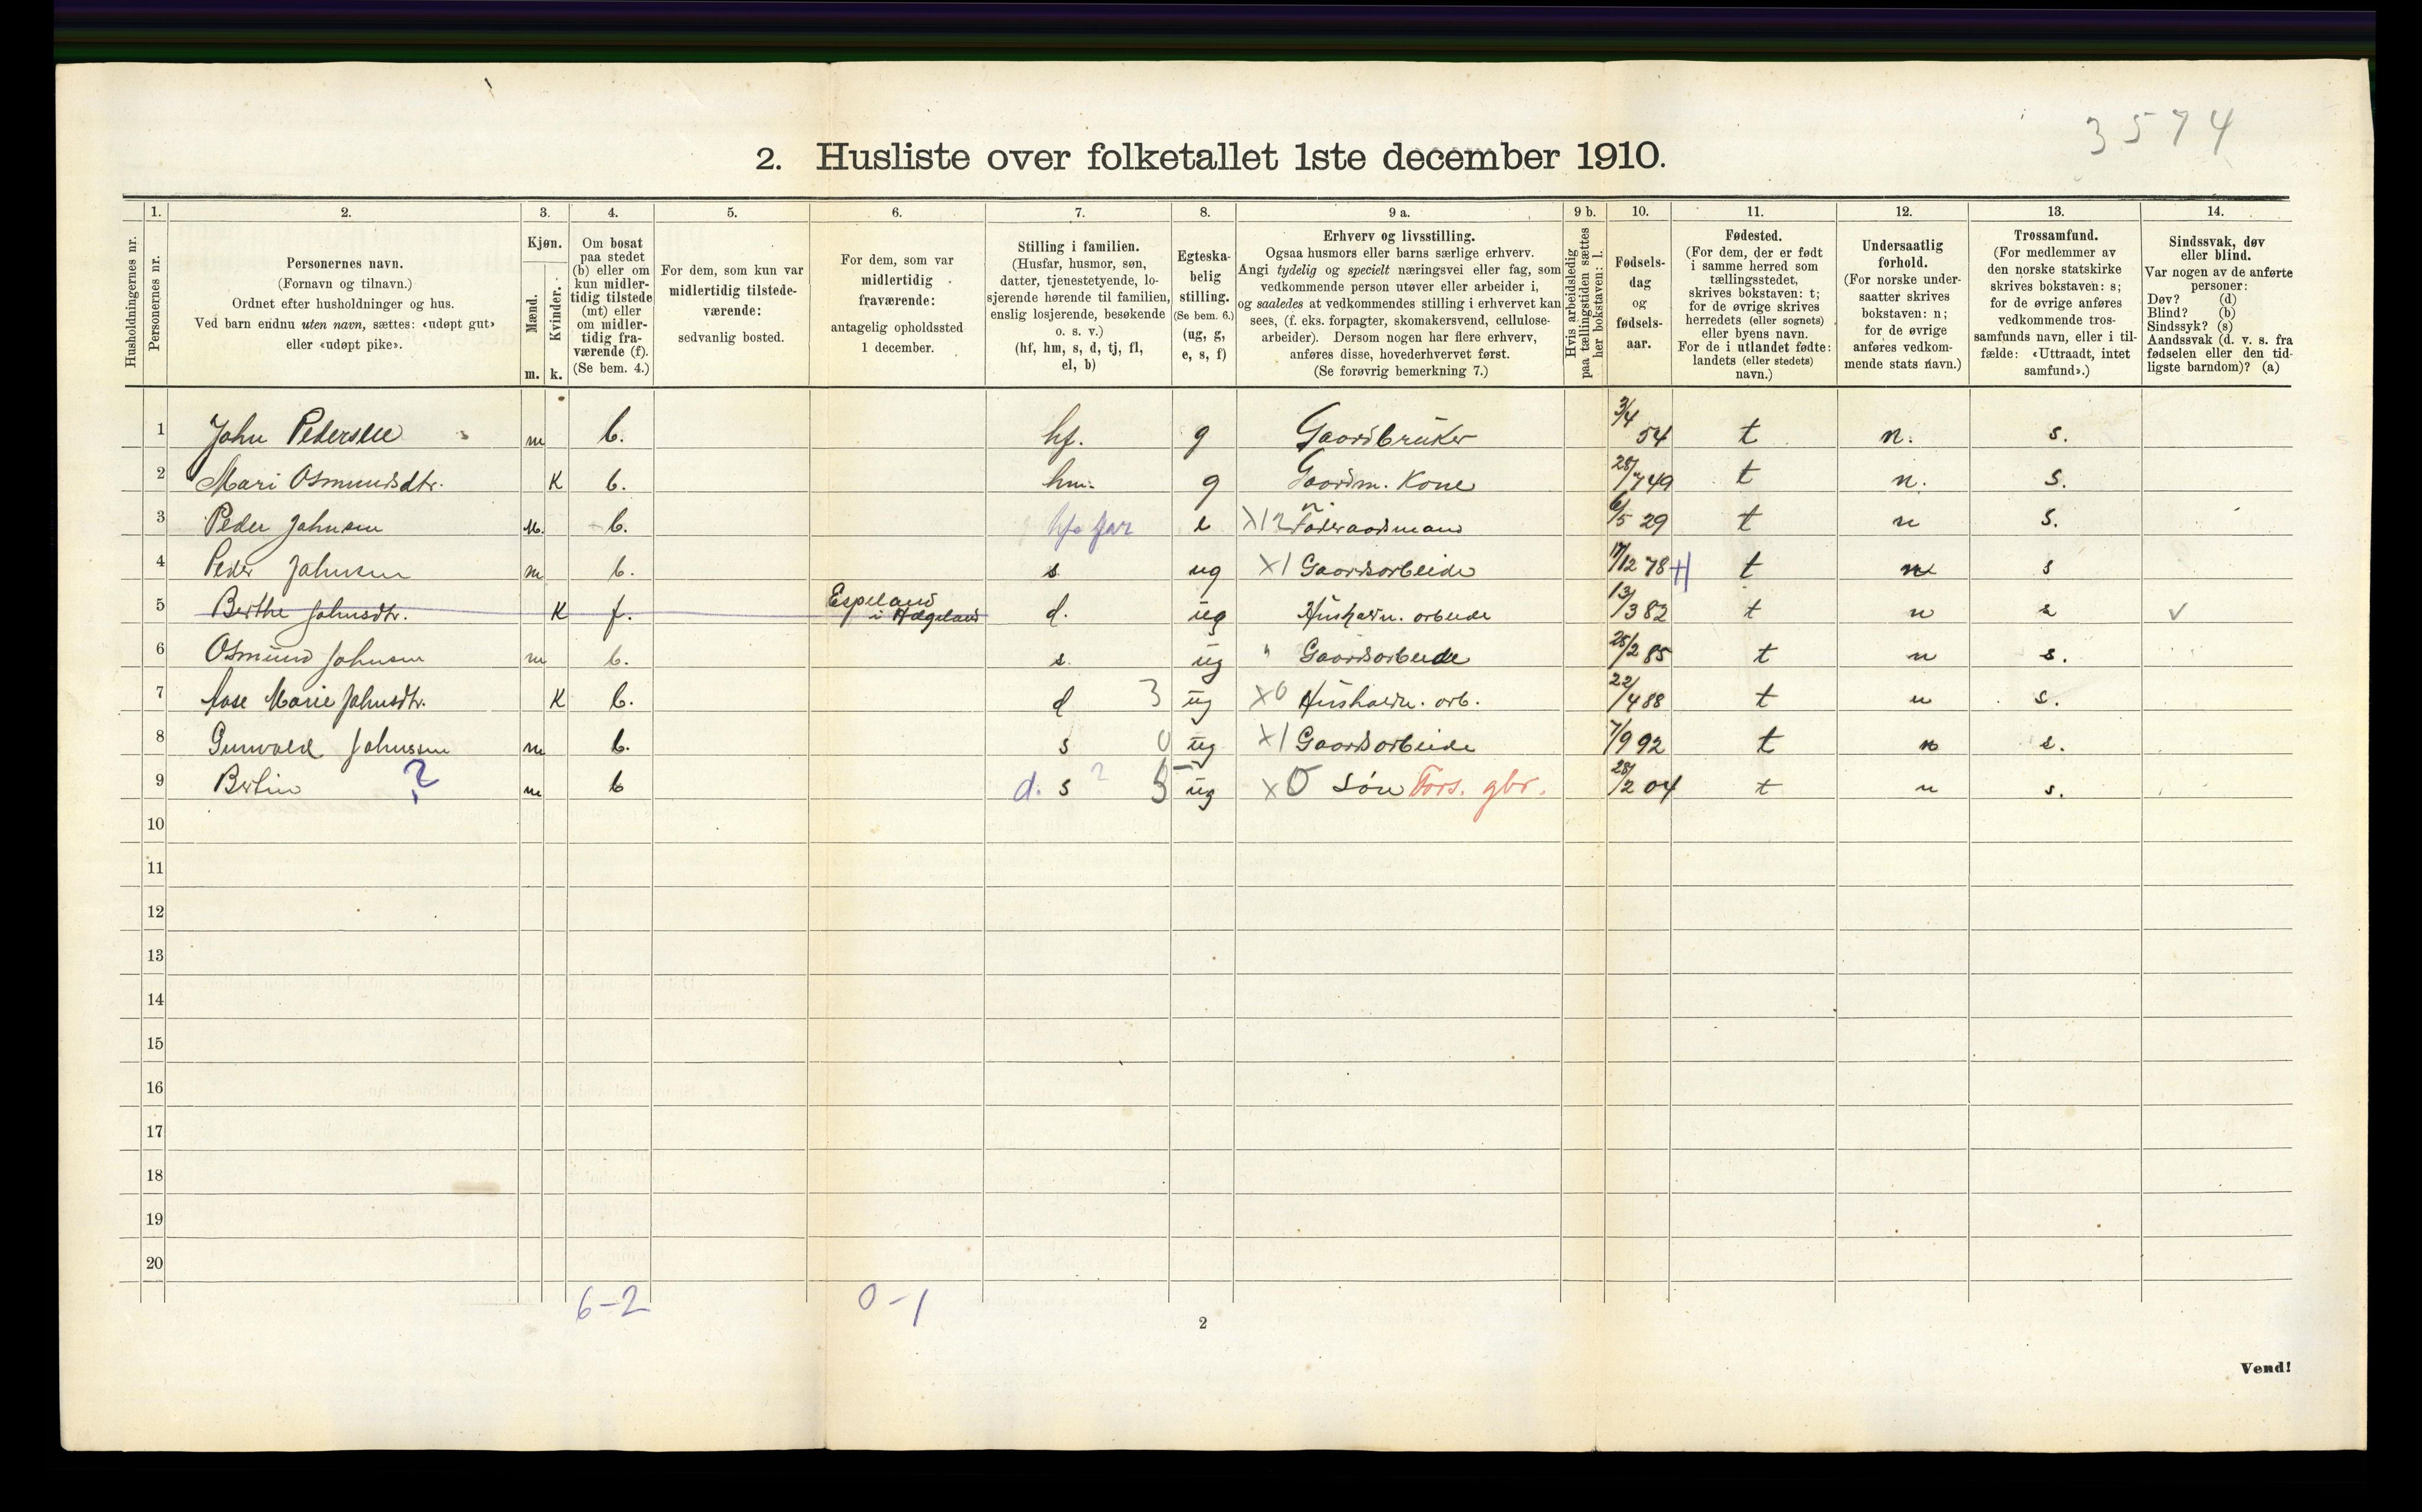 3574
2. Husliste over folketallet 1ste december 1910.
Husholdningernes nr.
1.
Personernes nr.
2.
Personernes navn.
(Fornavn og tilnavn.)
Ordnet efter husholdninger og hus.
Ved barn endnu uten navn, sættes: «udøpt gut»
eller «udøpt pike».
3.
Kjøn.
Mænd.
Kvinder.
m. k.
4.
Om bosat
paa stedet
(b) eller om
kun midler-
tidig tilstede
(mt) eller
om midler-
tidig fra-
værende (f).
(Se bem. 4.)
5.
For dem, som kun var
midlertidig tilstede-
værende:
sedvanlig bosted.
6.
For dem, som var
midlertidig
fraværende:
antagelig opholdssted
1 december.
7.
Stilling i familien.
(Husfar, husmor, søn,
datter, tjenestetyende, lo-
sjerende hørende til familien,
enslig losjerende, besøkende
o. s. v.)
(hf, hm, s, d, tj, fl,
el, b)
8.
Egteska-
belig
stilling.
(Se bem. 6.)
(ug, g,
e, s, f)
9 a.
Erhverv og livsstilling.
Ogsaa husmors eller barns særlige erhverv.
Angi tydelig og specielt næringsvei eller fag, som
vedkommende person utøver eller arbeider i,
og saaledes at vedkommendes stilling i erhvervet kan
sees, (f. eks. forpagter, skomakersvend, cellulose-
arbeider). Dersom nogen har flere erhverv,
anføres disse, hovederhvervet først.
(Se forøvrig bemerkning 7.)
9 b.
Hvis arbeidsledig
paa tællingstiden sættes
her bokstaven: l.
10.
Fødsels-
dag
og
fødsels-
aar.
11.
Fødested.
(For dem, der er født
i samme herred som
tællingsstedet,
skrives bokstaven: t;
for de øvrige skrives
herredets (eller sognets)
eller byens navn.
For de i utlandet fødte:
landets (eller stedets)
navn.)
12.
Undersaatlig
forhold.
(For norske under-
saatter skrives
bokstaven: n;
for de øvrige
anføres vedkom-
mende stats navn.)
13.
Trossamfund.
(For medlemmer av
den norske statskirke
skrives bokstaven: s;
for de øvrige anføres
vedkommende tros-
samfunds navn, eller i til-
fælde: «Uttraadt, intet
samfund».)
14.
Sindssvak, døv
eller blind.
Var nogen av de anførte
personer:
Døv? (d)
Blind? (b)
Sindssyk? (s)
Aandssvak (d. v. s. fra
fødselen eller den tid-
ligste barndom)? (a)
1 John Pedersen m b. hf. g Gaardbruker 3/4 54 t n. s.
2 Mari Osmundsdtr. K b. hm. g Gaardm. Kone 28/7 49 t n. s.
3 Peder Johnsen m. b. hfs far e X12 Føderaadsmand 6/5 29 t n s.
4 Peder Johnsen m b. s ug X1 Gaardsarbeide 17/12 78 t n s
5 Berthe Johnsdtr. K f. Espeland i Hægeland d. ug Husholdn. arbeide 13/3 82 t n s √
6 Osmund Johnsen m b. s. ug " Gaardsarbeide 25/2 85 t n s.
7 Aase Marie Johnsdtr. K b. d 3 ug X0 Husholdn. arb. 22/4 88 t n s.
8 Gunvald Johnsen m b. s 0 ug X1 Gaardsarbeide 7/9 92 t n s.
9 Bertin ? m b d. s ? 5 ug X0 Søn Fors. gbr. 28/2 04 t n s.
10
11
12
13
14
15
16
17
18
19
20
6-2 0-1
2
Vend!